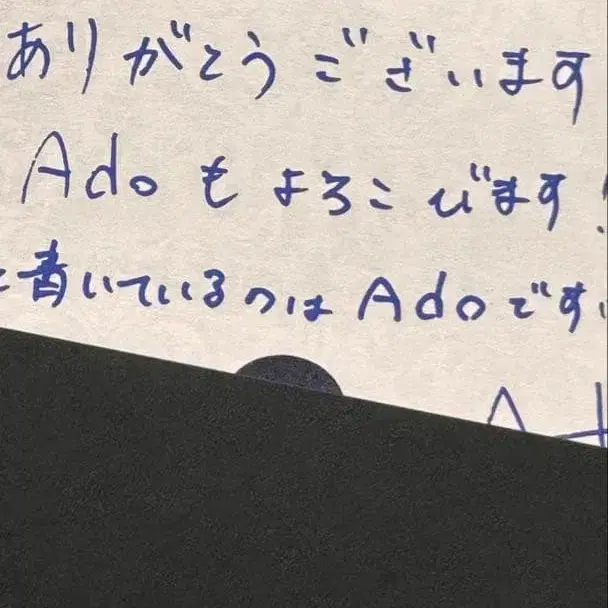 ありがとうございます
Adoもよろこびます!
と書いているのはAdoです。